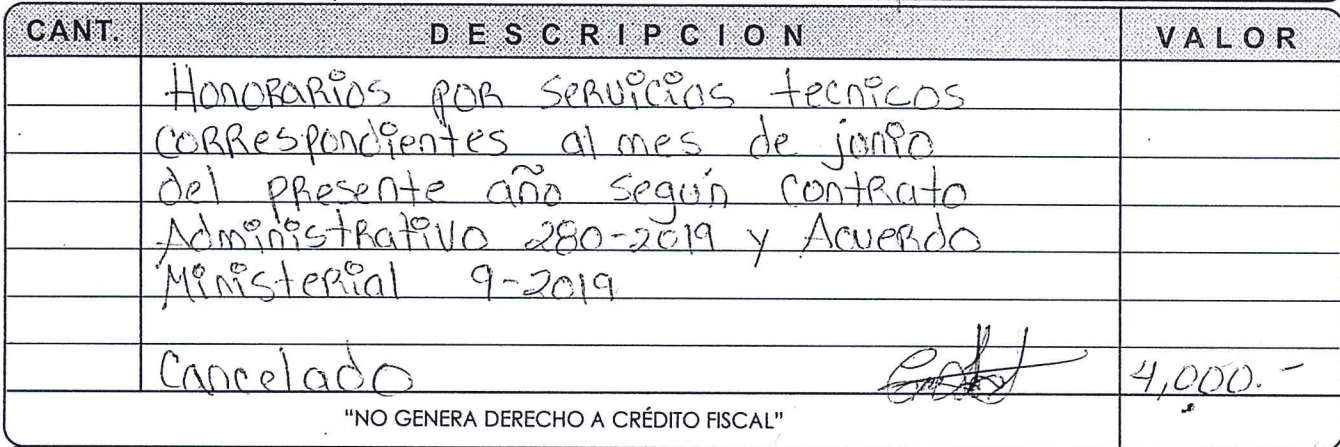 CANT. DESCRIPCION VALOR
Honorarios por servicios tecnicos
correspondientes al mes de junio
del presente año según contrato
Administrativo 280-2019 y Acuerdo
Ministerial 9-2019
Cancelado 4,000.-
"NO GENERA DERECHO A CRÉDITO FISCAL"